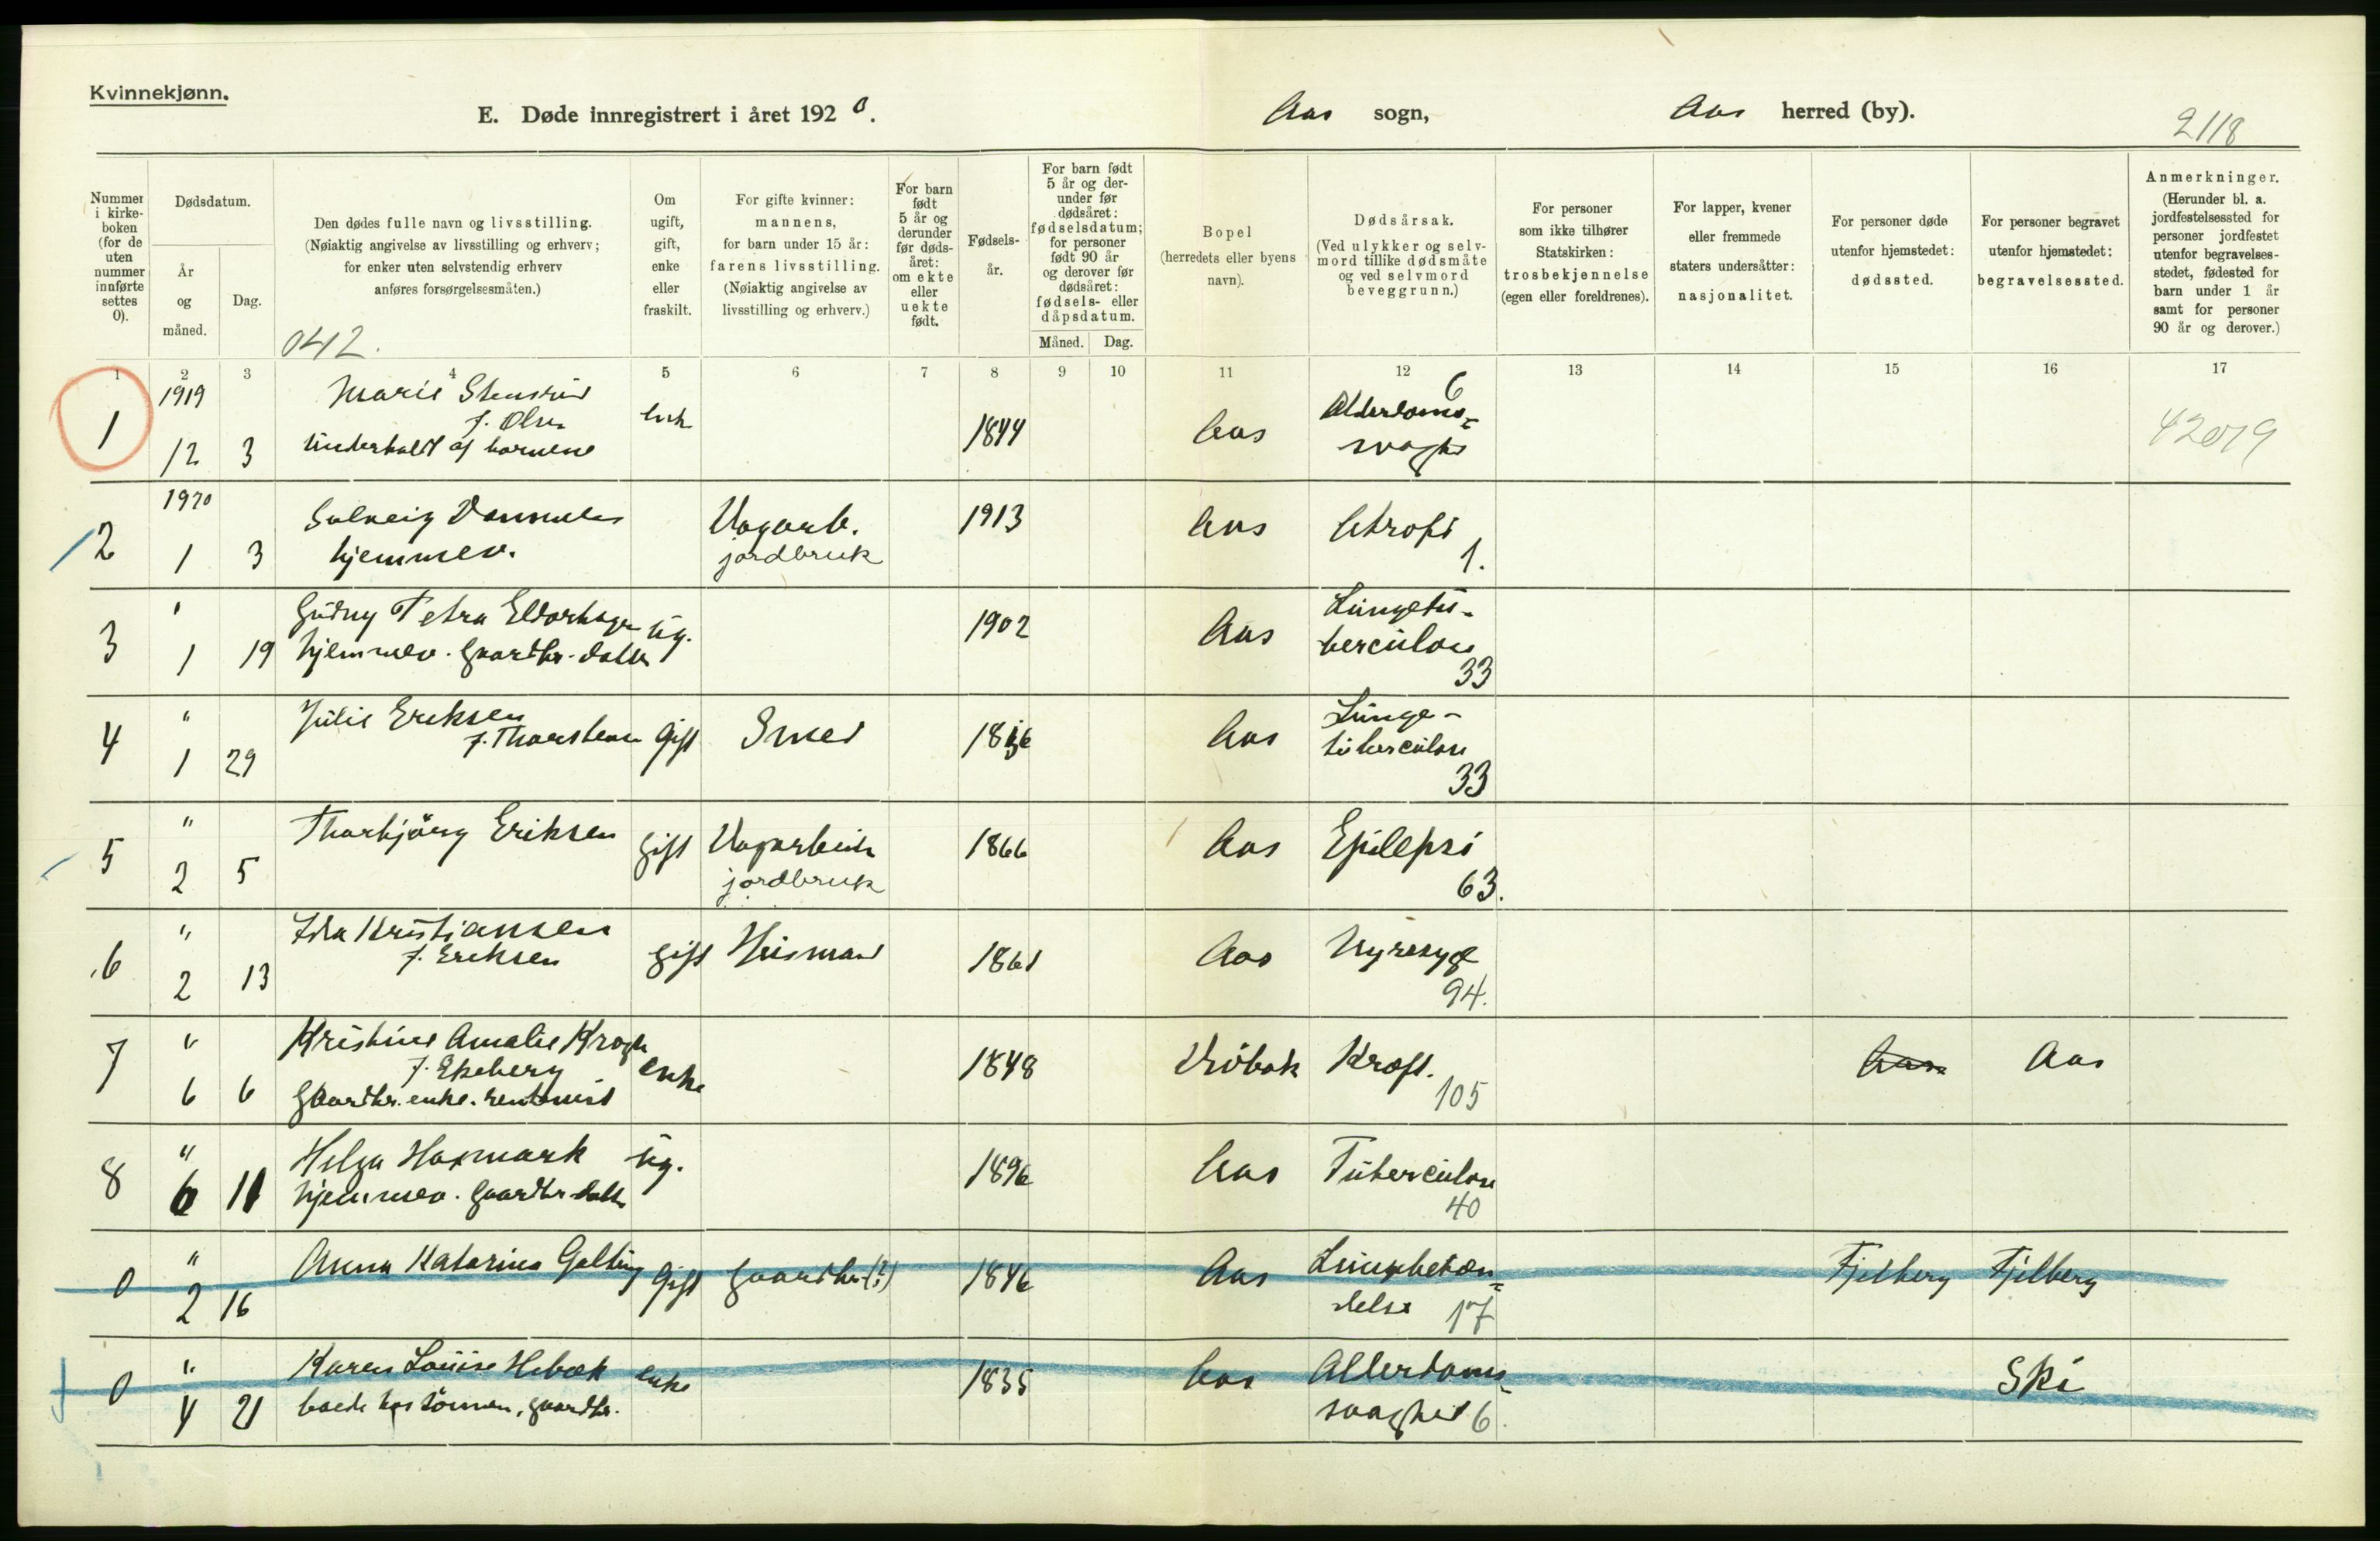 Kvinnekjønn.
E. Døde innregistrert i året 1920.
Aas sogn, Aas herred (by).
2118
Nummer i kirkeboken (for de uten nummer innførte settes 0).
Dødsdatum.
År og måned.
Dag.
Den dødes fulle navn og livsstilling.
(Nøiaktig angivelse av livsstilling og erhverv;
for enker uten selvstendig erhverv
anføres forsørgelsesmåten.)
042.
Om ugift, gift, enke eller fraskilt.
For gifte kvinner:
mannens,
for barn under 15 år:
farens livsstilling.
(Nøiaktig angivelse av
livsstilling og erhverv.)
For barn født 5 år og derunder før dødsåret: om ekte eller uekte født.
Fødselsår.
For barn født 5 år og derunder før dødsåret: fødselsdatum; for personer født 90 år og derover før dødsåret: fødsels- eller dåpsdatum.
Måned. Dag.
Bopel
(herredets eller byens
navn).
Dødsårsak.
(Ved ulykker og selvmord tillike dødsmåte og ved selvmord beveggrunn.)
For personer
som ikke tilhører
Statskirken:
trosbekjennelse
(egen eller foreldrenes).
For lapper, kvener
eller fremmede
staters undersåtter:
nasjonalitet.
For personer døde
utenfor hjemstedet:
dødssted.
For personer begravet
utenfor hjemstedet:
begravelsessted.
Anmerkninger.
(Herunder bl. a.
jordfestelsessted for
personer jordfestet
utenfor begravelses-
stedet, fødested for
barn under 1 år
samt for personer
90 år og derover.)
1 2 3 4 5 6 7 8 9 10 11 12 13 14 15 16 17
1 1919 12 3 Marie Stensrud f. Olsen Underholdt af barnene enke 1844 Aas Alderdoms- svaghed 6 42019
2 1920 1 3 Solveig hjemmev. Vogarb. jordbruk 1913 Aas Atrofi 1.
3 " 1 19 Gudny Petra hjemmev. Gaardbr. datter ug. 1902 Aas Lungetu- berculose 33
4 " 1 29 Julie Eriksen f. Thorstensen Gift Smed Aas Lunge- tuberculose 33
5 " 2 5 Thorbjörg Eriksen Gift Vogarbeider jordbruk 1866 Aas Epilepsi 63.
6 " 2 13 Ida Kristiansen f. Eriksen Gift Husmand 1861 Aas Nyresyge 94.
7 " 6 6 Kristine Amalie Krogh f. Ekeberg Gaardbr. enke. rentenist enke 1848 Dröbak Kræft. 105 Aas Aas
8 " 6 11 Helga hjemmev. Gaardbr. datter ug. 1896 Aas Tuberculose 40
0 " 2 16 Anna Katarina Gift Gaardbr(?) 1846 Aas Lungebetæn- delse 17 Fjelberg Fjelberg
0 " 4 21 Karen Louise boede hos sönnen, gaardbr. enke 1835 Aas Alderdoms- svaghed 6. Ski